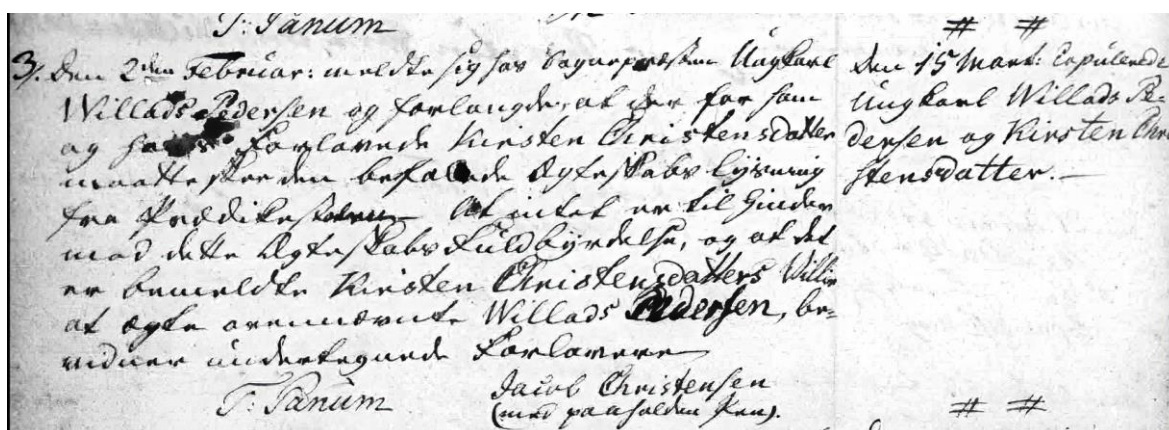 T: Panum
3/. Den 2den Februar: meldte sig hos Sognepræsten Ungkarl
Willads Pedersen og forlangde, at der for ham
og hans Forlovede Kirsten Christensdatter
maatte skee den befalede Ægteskabs Lysning
fra Prædikestolen. At intet er til Hinder
mod dette Ægteskabs Fuldbyrdelse, og at det
er bemeldte Kirsten Christensdatters Villie
at ægte ovennævnte Willads Pedersen, be-
vidner undertegnede Forlovere
T: Panum
Jacob Christensen
(med paaholden Pen).
# #
Den 15 Mart: Copulerede
Ungkarl Willads Pe-
dersen og Kirsten Chri
stensdatter.
# #